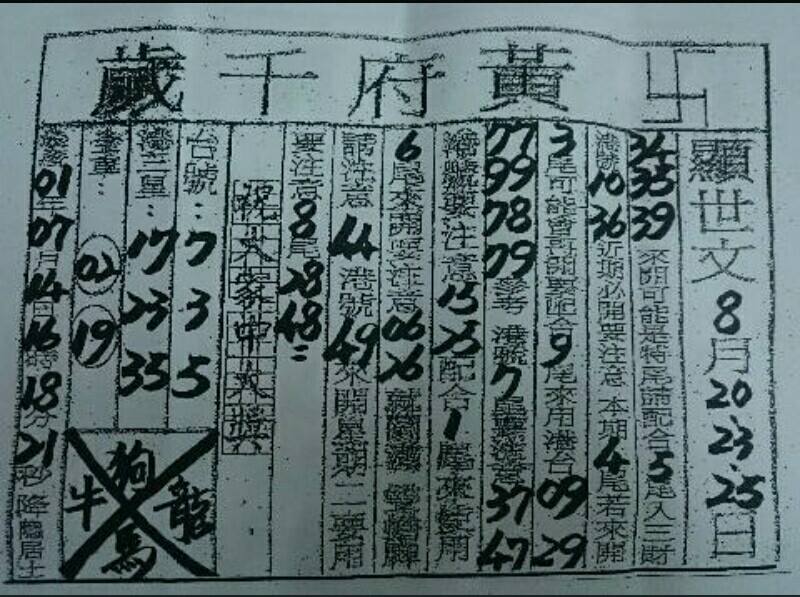 卐黃府千歲
顯世文8月20.23.25日
34 35 39 來開可能是特尾 配合5尾入三財
港號10 36近期必開要注意 本期4尾若來開
3尾可能會 開要配合9尾來用港台09 29
77 99 78 79參考 港號7尾 37 47
港號要注意15 25配合1尾來 用
6尾來開要注意06 26
請注意44港號49來開 期二要用
要注意8尾28 48=
祝大家中大獎
台號:7 3 5
港二星:17 23 35
02 19
01年07月14日16時18分21秒降 居士
狗 龍 馬 牛